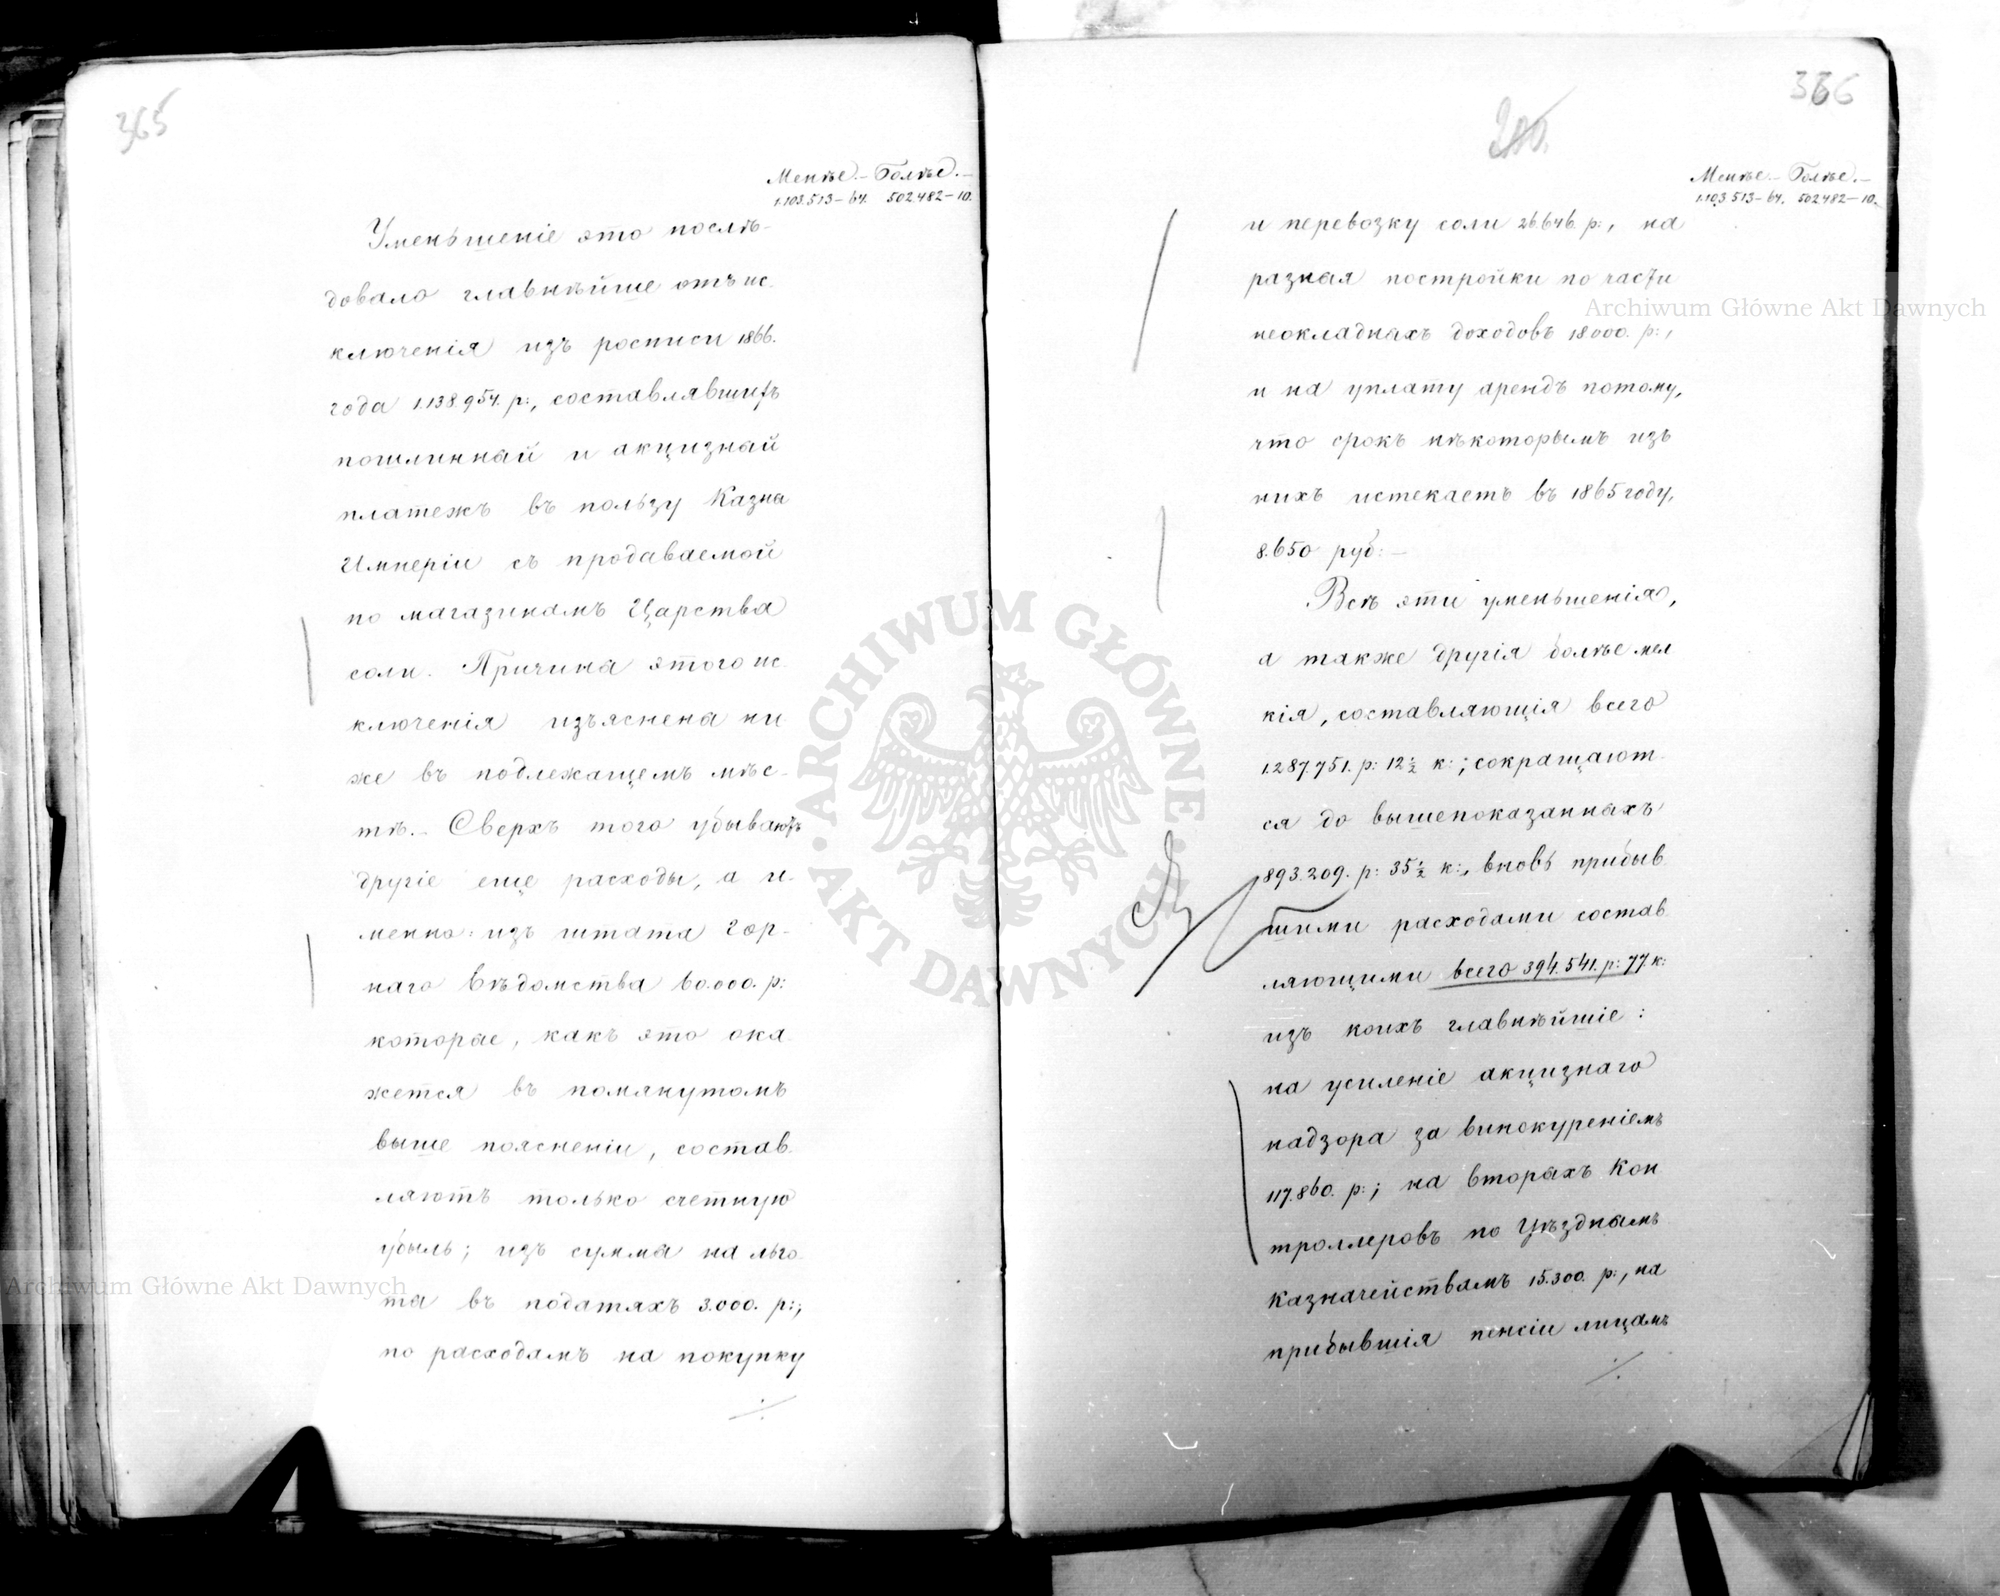 365
Менѣе.– Болѣе.–
1.103.513–64. 502.482–10.
Уменьшеніе это послѣ-
довало главнѣйше отъ ис-
ключенія изъ росписи 1866.
года 1.138.954. р:, составлявшихъ
пошлинный и акцизный
платежъ въ пользу Казны
Имперіи съ продаваемой
по магазинамъ Царства
соли. Причина этого ис-
ключенія изъяснена ни
же въ подлежащемъ мѣс-
тѣ.– Сверхъ того убываютъ
другіе еще расходы, а и-
менно: изъ штата Гор-
наго Вѣдомства 60.000. р:
которые, какъ это ока
жется въ помянутомъ
выше поясненіи, состав
ляютъ только счетную
убыль; изъ суммы на льго
ты въ податяхъ 3.000. р:;
по расходамъ на покупку
366
200.
Менѣе.– Болѣе.–
1.103.513–64. 502.482–10.
и перевозку соли 26.646. р:, на
разныя постройки по части
неокладныхъ доходовъ 18000. р:,
и на уплату арендъ потому,
что срокъ нѣкоторымъ изъ
нихъ истекаетъ въ 1865 году,
8.650 руб:–
Всѣ эти уменьшенія,
а также другія болѣе мел
кія, составляющія всего
1.287.751. р: 12½ к:; сокращают
ся до вышепоказанныхъ
893.209. р: 35½ к:, вновь прибыв
шими расходами состав
ляющими всего 394.541. р: 77 к:
изъ коихъ главнѣйшіе:
на усиленіе акцизнаго
надзора за винокуреніемъ
117.860. р:; на вторыхъ Кон
троллеровъ по Уѣзднымъ
Казначействамъ 15.300. р:, на
прибывшія пенсіи лицамъ
Archiwum Główne Akt Dawnych
Archiwum Główne Akt Dawnych
ARCHIWUM GŁÓWNE AKT DAWNYCH